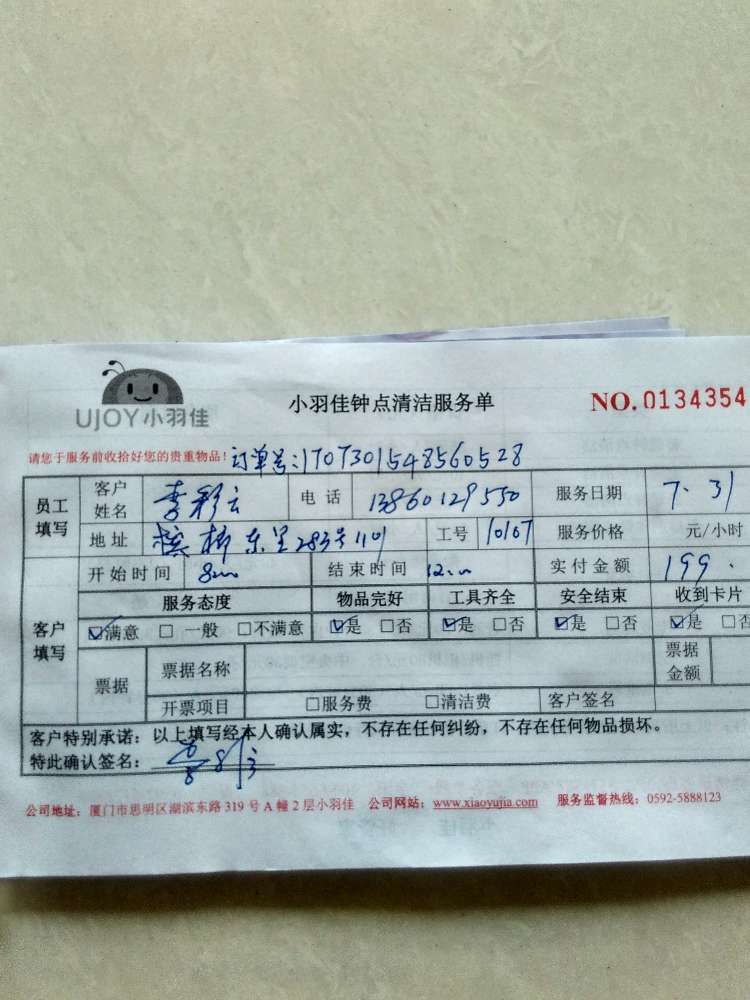 UJOY小羽佳
小羽佳钟点清洁服务单
NO. 0134354
请您于服务前收拾好您的贵重物品！ 订单号:1707301548560528
员工填写 客户姓名 李彩云 电话 13860129550 服务日期 7.31
地址 槟榔东里283号1101 工号 10107 服务价格 元/小时
客户填写 开始时间 8:00 结束时间 12:00 实付金额 199.
服务态度 物品完好 工具齐全 安全结束 收到卡片
☑满意 □一般 □不满意 ☑是 □否 ☑是 □否 ☑是 □否 ☑是 □否
票据 票据名称 票据金额
开票项目 □服务费 □清洁费 客户签名
客户特别承诺：以上填写经本人确认属实，不存在任何纠纷，不存在任何物品损坏。
特此确认签名：
公司地址：厦门市思明区湖滨东路 319 号 A 幢 2 层小羽佳 公司网站：www.xiaoyujia.com 服务监督热线：0592-5888123